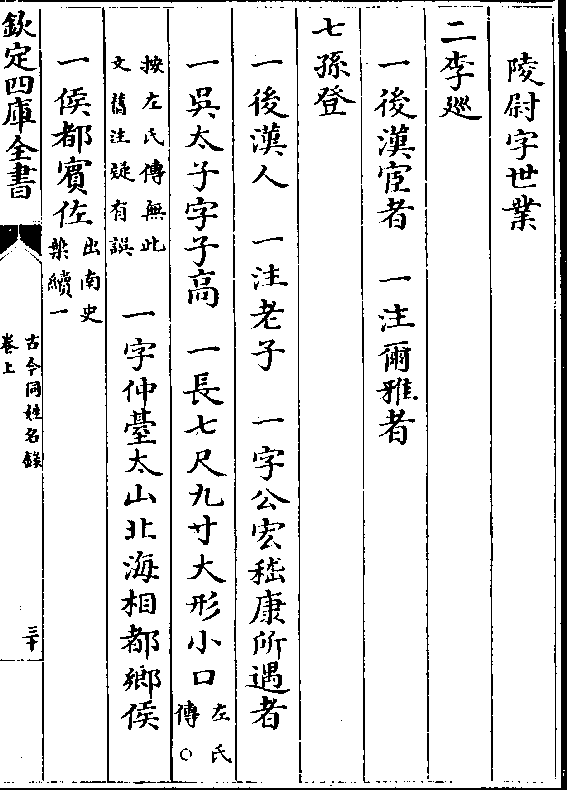 陵尉字世業
二李巡
一後漢宦者　一注爾雅者
七孫登
一後漢人　一注老子　一字公宏嵇康所遇者
一吳太子字子高　一長七尺九寸大形小口左氏傳○
按左氏傳無此文舊注疑有誤　一字仲臺太山北海相都鄉侯
一侯都賓佐出南史梁續一
欽定四庫全書
古今同姓名錄
卷上
三十